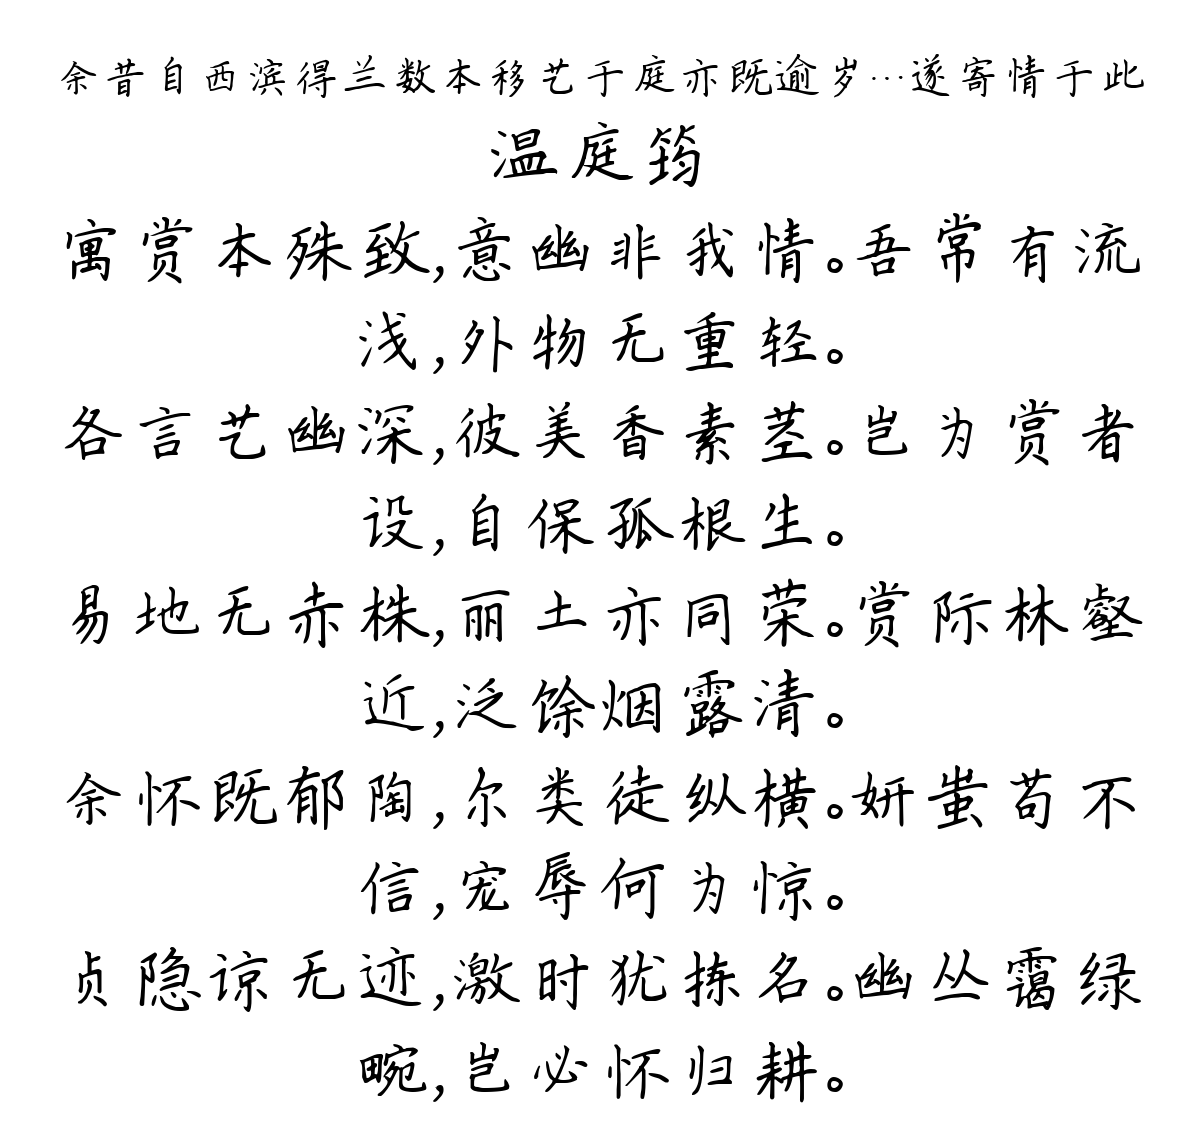 余昔自西滨得兰数本移艺于庭亦既逾岁…遂寄情于此
温庭筠
寓赏本殊致,意幽非我情。吾常有流
浅,外物无重轻。
各言艺幽深,彼美香素茎。岂为赏者
设,自保孤根生。
易地无赤株,丽土亦同荣。赏际林壑
近,泛馀烟露清。
余怀既郁陶,尔类徒纵横。妍蚩苟不
信,宠辱何为惊。
贞隐谅无迹,激时犹拣名。幽丛霭绿
畹,岂必怀归耕。